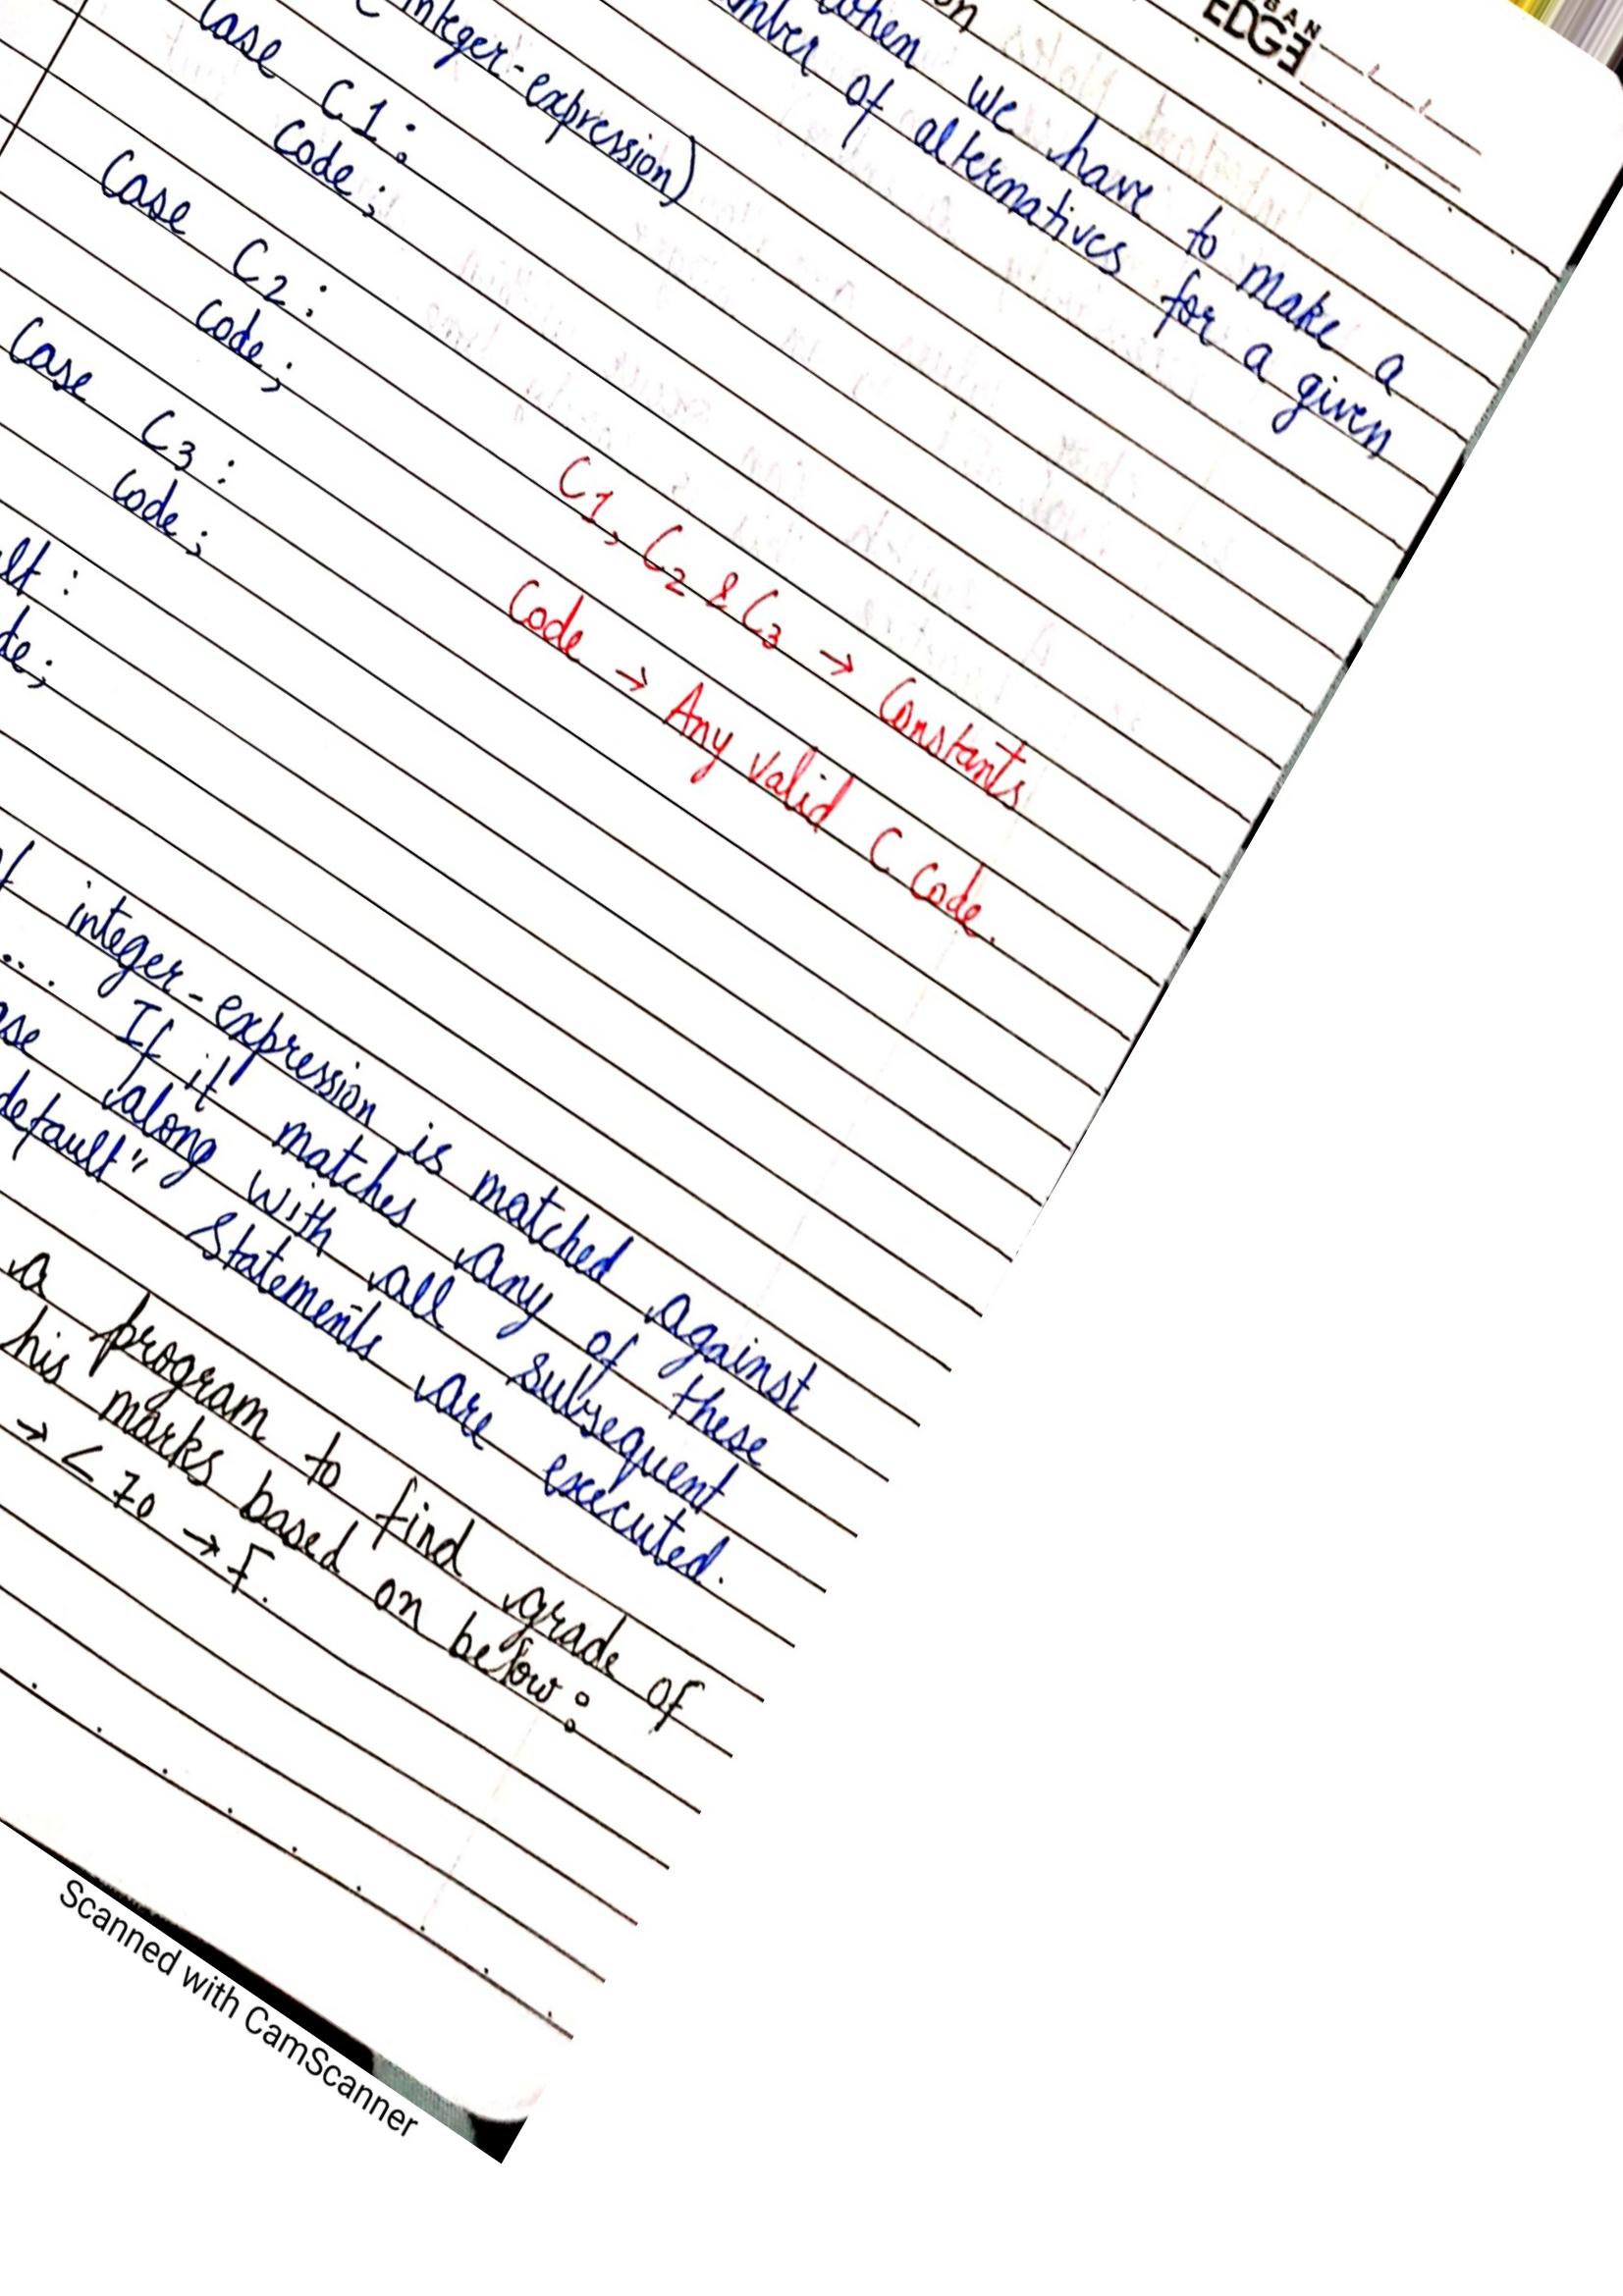 BAN
EDGE
on
when we have to make a
mber of alternatives for a given
(integer-expression)
Case C1:
Code;
Case C2:
Code;
Case C3:
Code;
lt:
de;
C1, C2 & C3 → Constants
Code → Any valid C Code.
integer-expression is matched against
... If it matches any of these
se along with all subsequent
default" statements are executed.
a program to find grade of
his marks based on below:
→ < 70 → F.
Scanned with CamScanner